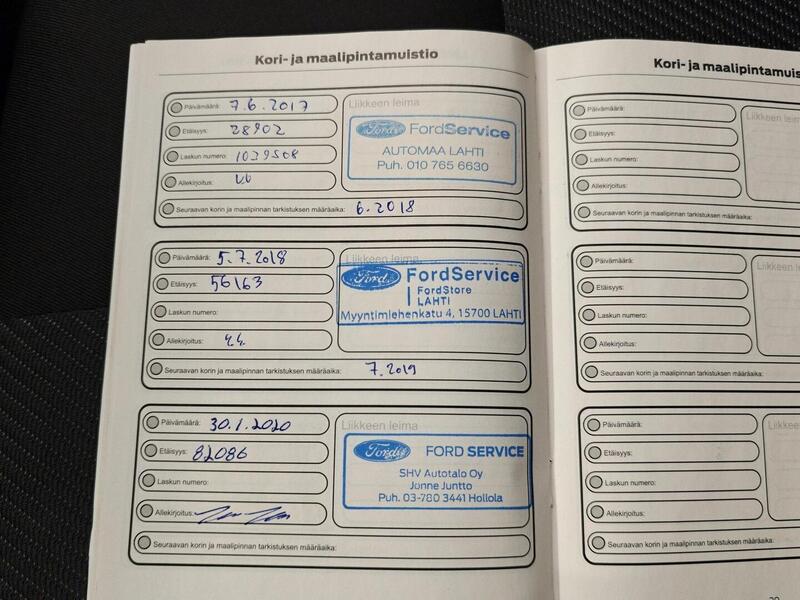 Kori- ja maalipintamuistio
Päivämäärä: 7.6.2017
Etäisyys: 28902
Laskun numero: 1039508
Allekirjoitus:
Seuraavan korin ja maalipinnan tarkistuksen määräaika: 6.2018
Liikkeen leima
Ford FordService
AUTOMAA LAHTI
Puh. 010 765 6630
Päivämäärä: 5.7.2018
Etäisyys: 56163
Laskun numero:
Allekirjoitus:
Seuraavan korin ja maalipinnan tarkistuksen määräaika: 7.2019
Liikkeen leima
Ford FordService
FordStore
LAHTI
Myyntimiehenkatu 4, 15700 LAHTI
Päivämäärä: 30.1.2020
Etäisyys: 82086
Laskun numero:
Allekirjoitus:
Seuraavan korin ja maalipinnan tarkistuksen määräaika:
Liikkeen leima
Ford FORD SERVICE
SHV Autotalo Oy
Jonne Juntto
Puh. 03-780 3441 Hollola
Kori- ja maalipintamuis
Päivämäärä:
Etäisyys:
Laskun numero:
Allekirjoitus:
Seuraavan korin ja maalipinnan tarkistuksen määräaika:
Liikkeen leima
Päivämäärä:
Etäisyys:
Laskun numero:
Allekirjoitus:
Seuraavan korin ja maalipinnan tarkistuksen määräaika:
Liikkeen leima
Päivämäärä:
Etäisyys:
Laskun numero:
Allekirjoitus:
Seuraavan korin ja maalipinnan tarkistuksen määräaika:
Liikkeen